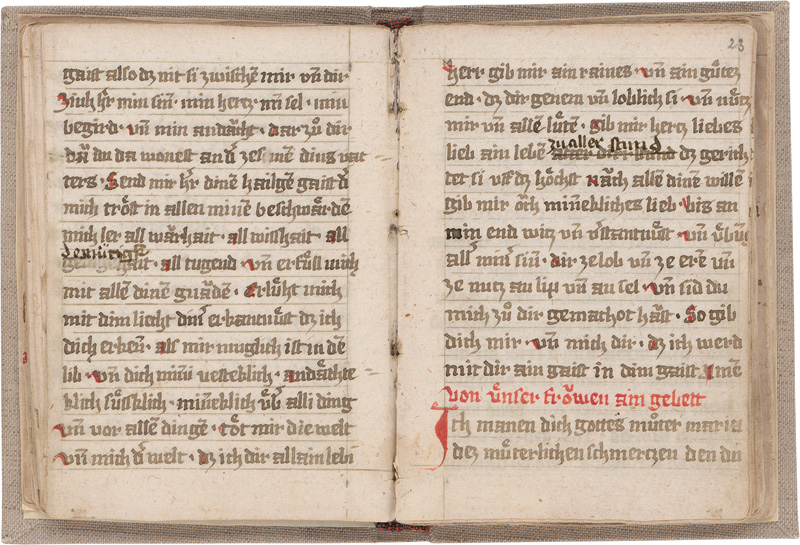 gaist also dz nit si zwischē mir vn̄ dir
Züch h̄r min sin̄ · min hertz · mī sel · min
begird · vn̄ min andåcht · dar zů dir
da du da wonest an
ters · Send mir h̄r dinē hailgē gaist d̄
mich trőst in allen minē beschwårdē
mich ler all wårhait · all wisshait · all
demütigk
gait · all tugend · vn̄ erfüll mich
mit allē dinē gnådē · Erlüht mich
mit dim liecht din̄ erbarmůst dz ich
dich erken̄ · als mir muglich ist in dē
lib · vn̄ dich min̄ vesteklich · andåchte
klich süssklich · minēklich üb̄ alli ding
vn̄ vor allē dingē · tőt mir die welt
vn̄ mich d̄ welt · dz ich dir allain lebi
23
herr · gib mir ain raines · vn̄ ain gůtez
end · dz dir genem vn̄ loblich si · vn̄ nütz
mir vn̄ allē lütē · gib mir hertz liebes
zu aller stund
lieb ain lebē dz gerich
tet si vff dz hőchst nåch allē dinē willē
gib mir och minēkliches lieb · bis an
min end witz vn̄ v̄stantnůst · vn̄ übūg
all min̄ sin̄ · dir ze lob vn̄ ze erē vn̄
ze nutz an lip vn̄ an sel · vn̄ sid du
mich zů dir gemachot håst · So gib
dich mir · vn̄ mich dir · dz ich werd
mit dir ain gaist in dim gaist Amē
von ünser frőwen ain gebett
Ich manen dich gottes můter maria
dez můterlichen schmertzen den du
a